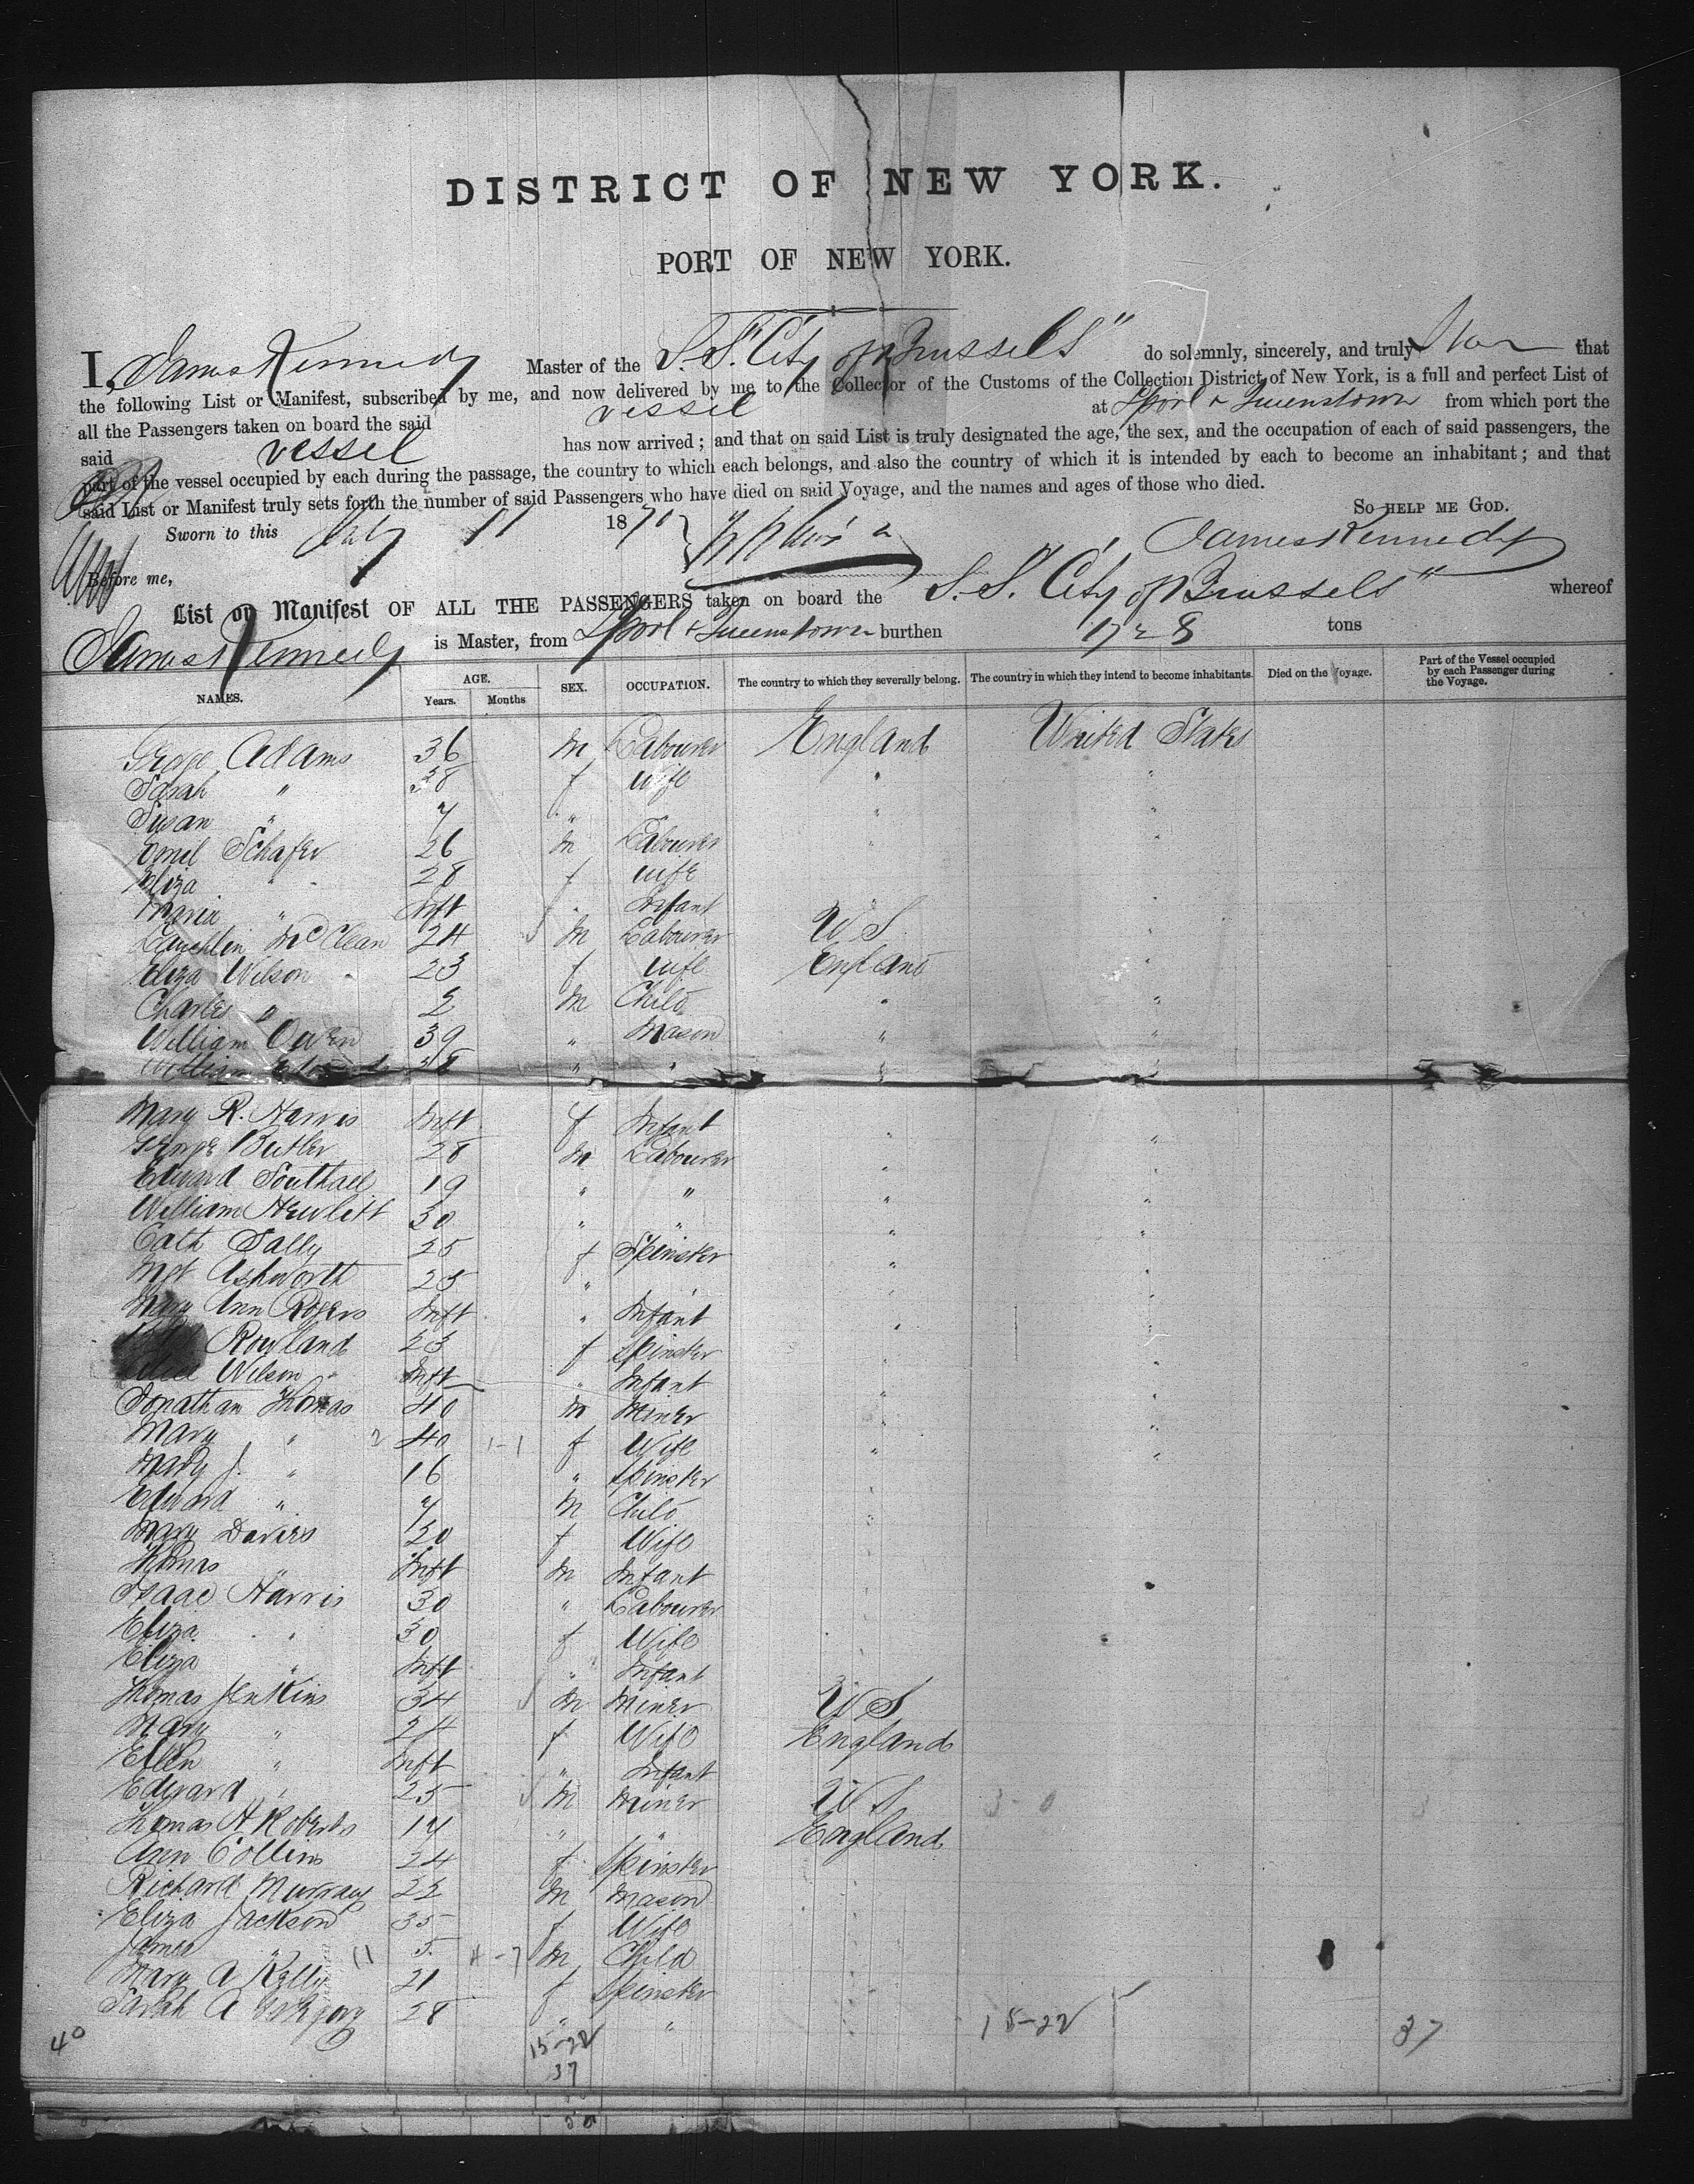 DISTRICT OF NEW YORK.
PORT OF NEW YORK.
I, James Kennedy Master of the S.S. "City of Brussels" do solemnly, sincerely, and truly that
the following List or Manifest, subscribed by me, and now delivered by me to the Collector of the Customs of the Collection District of New York, is a full and perfect List of
all the Passengers taken on board the said vessel at Lpool & Queenstown from which port the
said vessel has now arrived; and that on said List is truly designated the age, the sex, and the occupation of each of said passengers, the
part of the vessel occupied by each during the passage, the country to which each belongs, and also the country of which it is intended by each to become an inhabitant; and that
said List or Manifest truly sets forth the number of said Passengers who have died on said Voyage, and the names and ages of those who died.
So help me God.
Sworn to this July 11 1870 James Kennedy
Before me,
List or Manifest OF ALL THE PASSENGERS taken on board the S.S. "City of Brussels" whereof
James Kennedy is Master, from Lpool & Queenstown burthen tons
NAMES. AGE. Years. Months SEX. OCCUPATION. The country to which they severally belong. The country in which they intend to become inhabitants. Died on the Voyage. Part of the Vessel occupied by each Passenger during the Voyage.
George Adams 36 m Labourer England United States
Sarah " 38 f Wife " "
Susan " 7 " "
Emil Schafer 26 m Labourer "
Eliza " 28 f wife
Maria " Inft " Infant "
Lauchlin McClean 24 m Labourer U S "
Eliza Wilson 23 f wife England "
Charles " 2 m Child " "
William Owen 39 " Mason " "
William " " "
Mary R. Harris Inft f Infant " "
George Butler 28 m Labourer " "
Edward Southall 19 " " " "
William Hewlitt 30 " " " "
Cath Sally 25 f Spinster " "
Mgt Ashworth 25 " " "
Mary Ann Rogers Inft " Infant " "
Rowland 23 f Spinster "
Wilson Inft " Infant " "
Jonathan Thomas 40 m Miner "
Mary " 2 40 1-1 f Wife " "
Mary J. " 16 " Spinster
Edward " 7 m Child
Mary Davies 30 f Wife
Thomas " Inft m Infant
Isaac Harris 30 " Labourer
Eliza " 30 f Wife
Eliza " Inft " Infant
Thomas Jenkins 34 m Miner U S
Mary " 24 f Wife England
Ellen " Inft " Infant
Edward " 25 m Miner U S 3-0 3
Thomas H Roberts 17 " " England
Ann Collins 24 f Spinster
Richard Murray 22 m Mason
Eliza Jackson 35 f Wife
James " 11 5 4-7 m Child
Mary A Kelly 21 f Spinster
Sarah A Gregory 28 " "
40 15-22 15-22 37
37